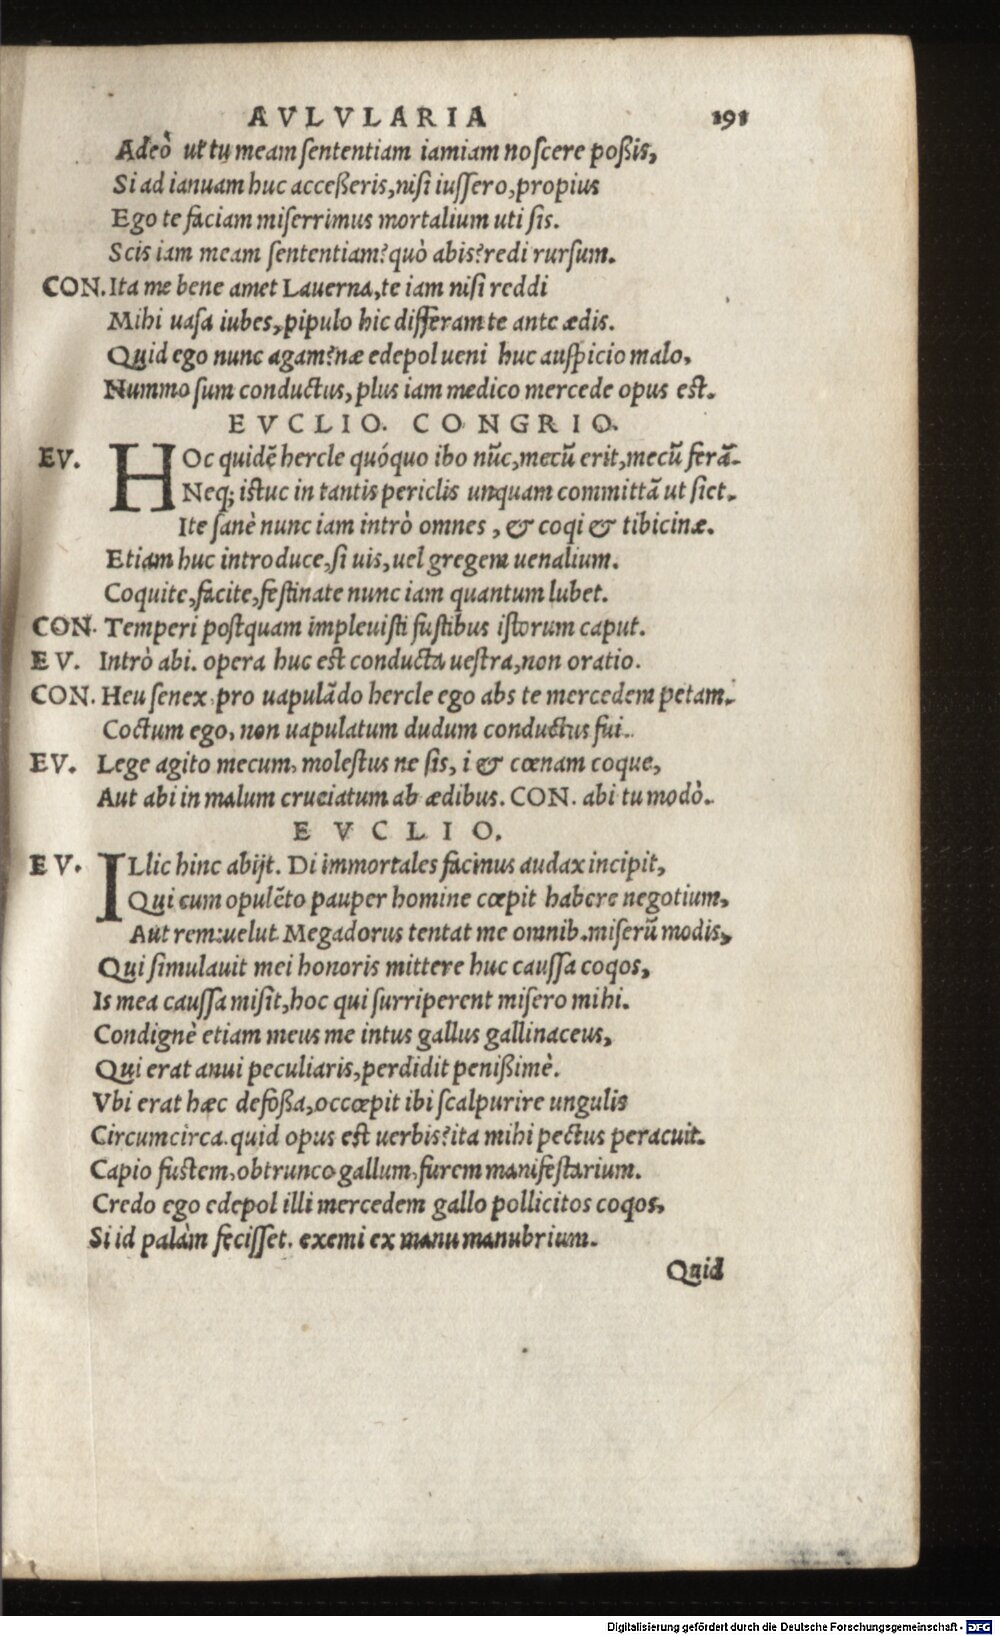 AVLVLARIA 191
Adeò ut tu meam sententiam iamiam noscere poßis,
Si ad ianuam huc acceßeris, nisi iussero, propius
Ego te faciam miserrimus mortalium uti sis.
Scis iam meam sententiam? quò abis? redi rursum.
CON. Ita me bene amet Lauerna, te iam nisi reddi
Mihi uasa iubes, pipulo hic differam te ante ædis.
Quid ego nunc agam? næ edepol ueni huc auspicio malo,
Nummo sum conductus, plus iam medico mercede opus est.
EVCLIO. CONGRIO.
EV. HOc quidē hercle quóquo ibo nūc, mecū erit, mecū ferā.
Neq; istuc in tantis periclis unquam committā ut siet.
Ite sanè nunc iam intrò omnes, & coqi & tibicinæ.
Etiam huc introduce, si uis, uel gregem uenalium.
Coquite, facite, festinate nunc iam quantum lubet.
CON. Temperi postquam impleuisti fustibus istorum caput.
EV. Intrò abi. opera huc est conducta uestra, non oratio.
CON. Heu senex pro uapulādo hercle ego abs te mercedem petam.
Coctum ego, non uapulatum dudum conductus fui.
EV. Lege agito mecum, molestus ne sis, i & cœnam coque,
Aut abi in malum cruciatum ab ædibus. CON. abi tu modò.
EVCLIO.
EV. ILlic hinc abijt. Di immortales facinus audax incipit,
Qui cum opulēto pauper homine cœpit habere negotium,
Aut rem: uelut Megadorus tentat me omnib. miserū modis,
Qui simulauit mei honoris mittere huc caussa coqos,
Is mea caussa misit, hoc qui surriperent misero mihi.
Condignè etiam meus me intus gallus gallinaceus,
Qui erat anui peculiaris, perdidit penißimè.
Vbi erat hæc defoßa, occœpit ibi scalpurire ungulis
Circumcirca. quid opus est uerbis? ita mihi pectus peracuit.
Capio fustem, obtrunco gallum, furem manifestarium.
Credo ego edepol illi mercedem gallo pollicitos coqos,
Si id palàm fecisset. exemi ex manu manubrium.
Quid
Digitalisierung gefördert durch die Deutsche Forschungsgemeinschaft - DFG